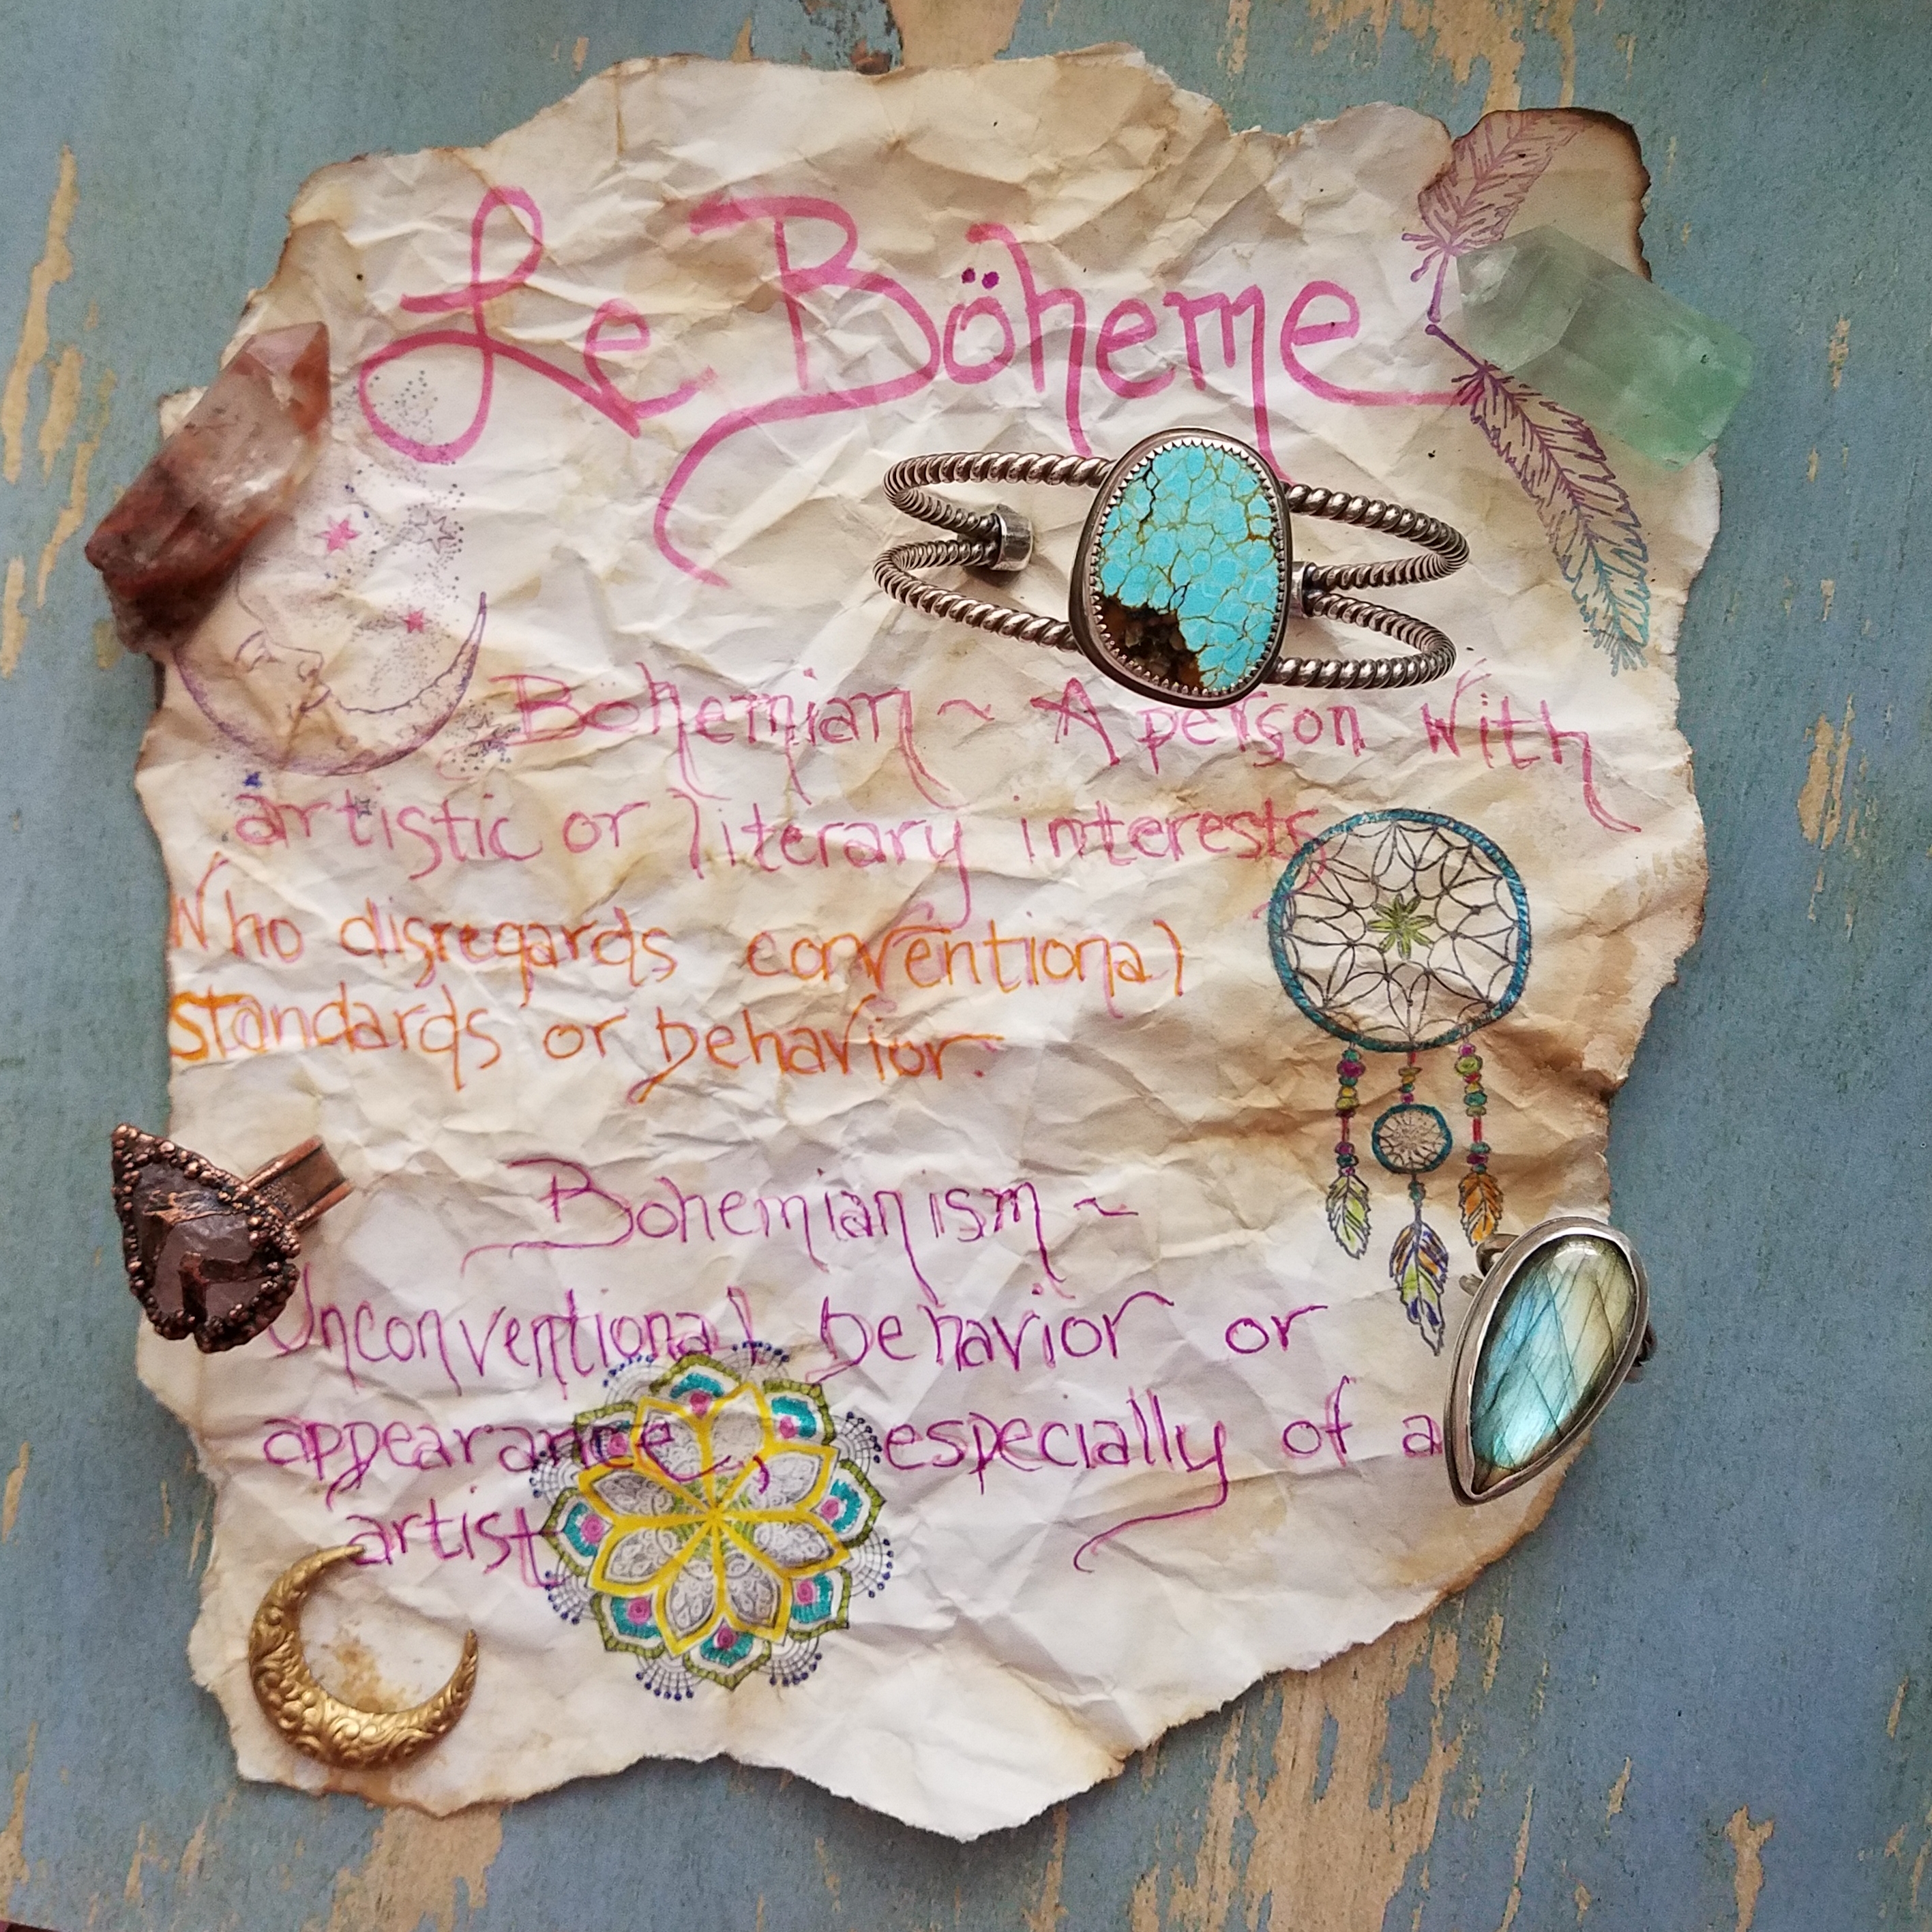 Le Böheme
Bohemian ~ A person with
artistic or literary interests
Who disregards conventional
standards or behavior.
Bohemianism ~
Unconventional behavior or
appearance, especially of a
artist